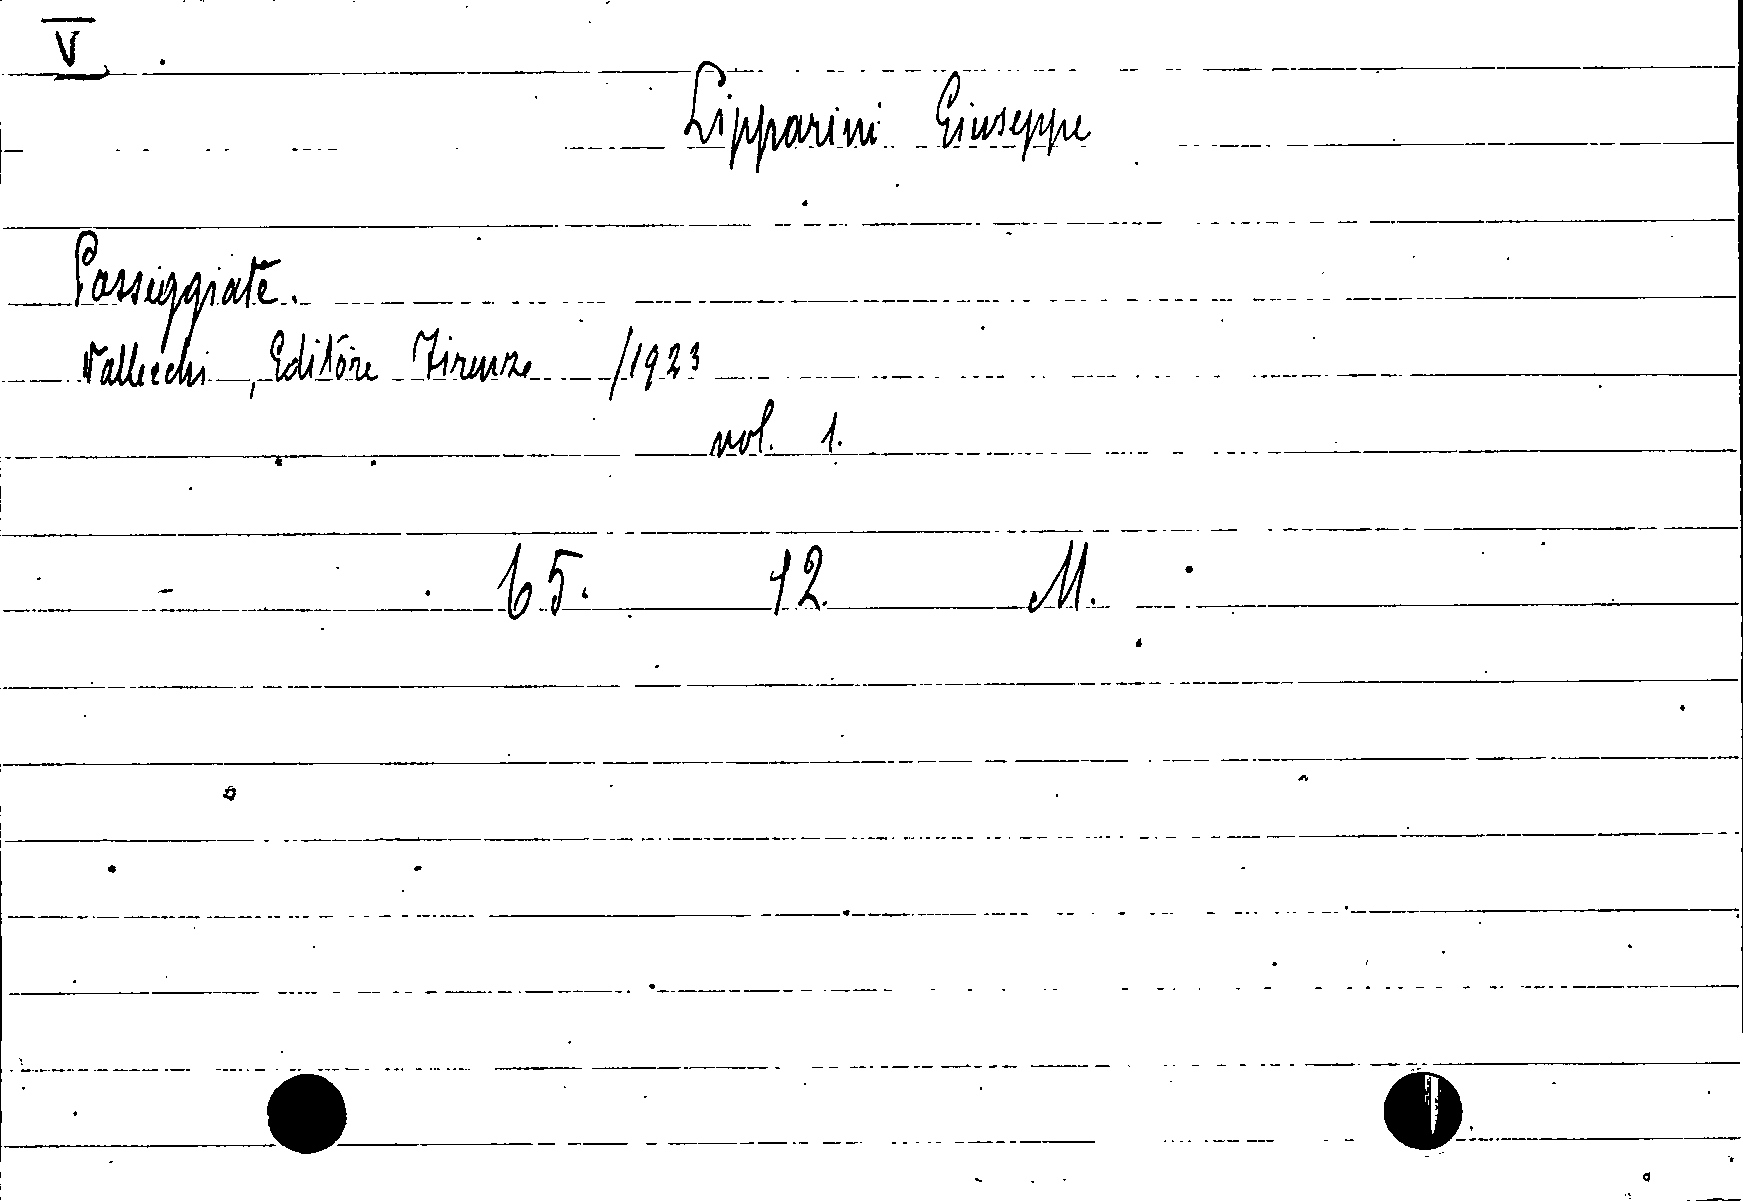 V
Lipparini Giuseppe
Passeggiate.
Vallecchi, Editore Firenze /1923
vol. 1.
65. 12. M.